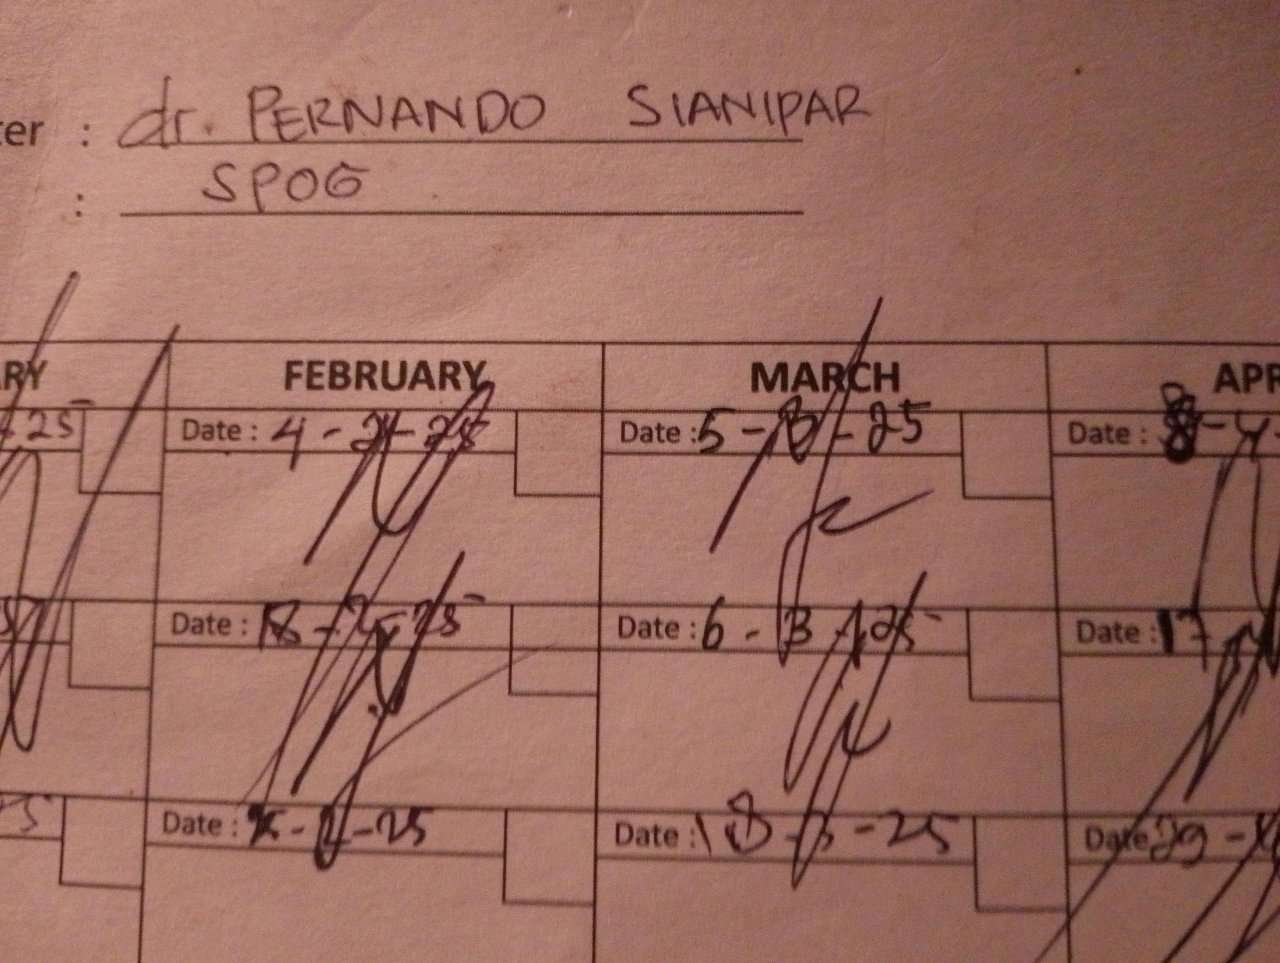 ter : dr. PERNANDO SIANIPAR
: SPOG
RY FEBRUARY MARCH APR
25 Date : 4 - 2 - 25 Date : 5 - 3 - 25 Date : 8 - 4
Date : 18 - 2 - 25 Date : 6 - 3 - 25 Date : 17
Date : - 25 Date : 18 - 3 - 25 Date 29 -